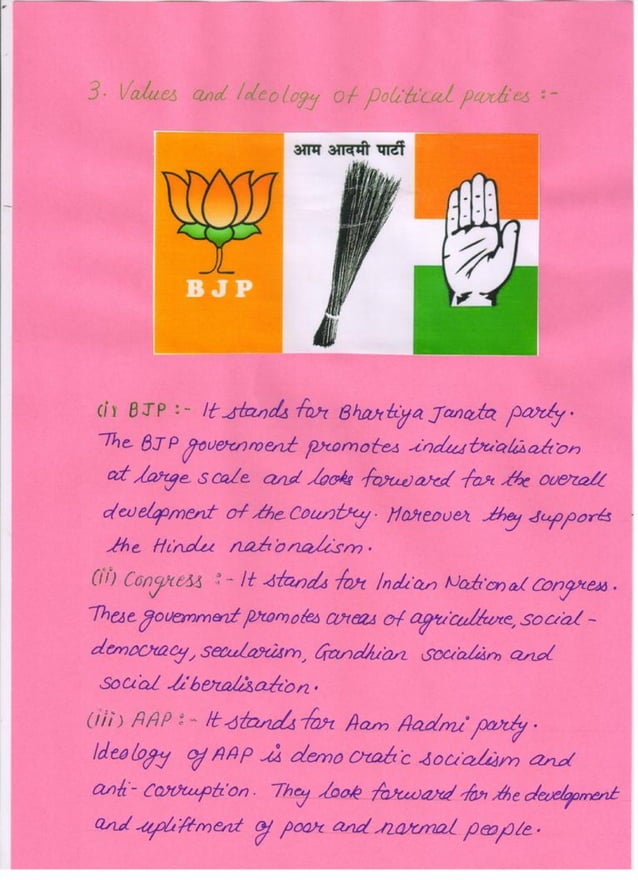 3. Values and Ideology of political parties :-
आम आदमी पार्टी
BJP
(i) BJP :- It stands for Bhartiya Janata party.
The BJP government promotes industrialisation
at large scale and looks forward for the overall
development of the country. Moreover they supports
the Hindu nationalism.
(ii) Congress :- It stands for Indian National congress.
These government promotes areas of agriculture, social-
democracy, secularism, Gandhian socialism and
social liberalisation.
(iii) AAP :- It stands for Aam Aadmi party.
Ideology of AAP is democratic socialism and
anti-corruption. They look forward for the development
and upliftment of poor and normal people.